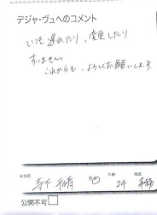 デジャ・ヴュへのコメント
いつも遅れたり、変更したり
すいません
これからも、よろしくお願いします
24
公開不可